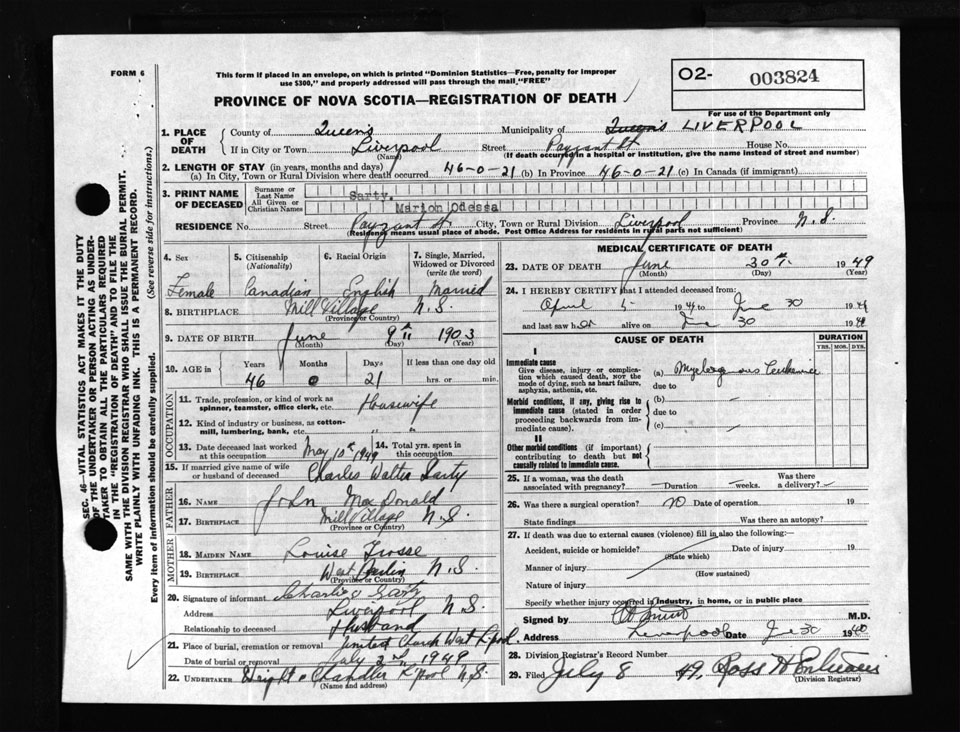 FORM 6
This form if placed in an envelope, on which is printed "Dominion Statistics—Free, penalty for improper
use $300," and properly addressed will pass through the mail "FREE"
O2- 003824
PROVINCE OF NOVA SCOTIA—REGISTRATION OF DEATH
For use of the Department only
1. PLACE OF DEATH { County of Queens Municipality of Queens LIVERPOOL
If in City or Town Liverpool (Name) Street Payzant St House No.
(If death occurred in a hospital or institution, give the name instead of street and number)
2. LENGTH OF STAY (in years, months and days)
(a) In City, Town or Rural Division where death occurred 46-0-21 (b) In Province 46-0-21 (c) In Canada (if immigrant)
3. PRINT NAME OF DECEASED { Surname or Last Name Sarty.
All Given or Christian Names Marion Odessa
RESIDENCE No. Street Payzant St. City, Town or Rural Division Liverpool Province N.S.
(Residence means usual place of abode. Post Office Address for residents in rural parts not sufficient)
4. Sex Female
5. Citizenship (Nationality) Canadian
6. Racial Origin English
7. Single, Married, Widowed or Divorced (write the word) Married
8. BIRTHPLACE Mill Village N.S.
(Province or Country)
9. DATE OF BIRTH June 9th 1903
(Month) (Day) (Year)
10. AGE in { Years 46 Months 0 Days 21 If less than one day old hrs. or min.
OCCUPATION
11. Trade, profession, or kind of work as spinner, teamster, office clerk, etc. Housewife
12. Kind of industry or business, as cotton-mill, lumbering, bank, etc. " "
13. Date deceased last worked at this occupation May 10th 1949 14. Total yrs. spent in this occupation
15. If married give name of wife or husband of deceased Charles Walter Sarty
FATHER
16. NAME John MacDonald
17. BIRTHPLACE Mill Village N.S.
(Province or Country)
MOTHER
18. MAIDEN NAME Louise
19. BIRTHPLACE West Berlin N.S.
(Province or Country)
20. Signature of informant Sarty
Address Liverpool N.S.
Relationship to deceased Husband
21. Place of burial, cremation or removal United Church West L'pool.
Date of burial or removal July 2nd 1949
22. UNDERTAKER Wright & Chandler L'pool N.S.
(Name and address)
MEDICAL CERTIFICATE OF DEATH
23. DATE OF DEATH June 30th 1949
(Month) (Day) (Year)
24. I HEREBY CERTIFY that I attended deceased from:
April 5 19 June 30 19
and last saw her alive on 30 19
CAUSE OF DEATH
DURATION
YRS. MOS. DYS.
I
Immediate cause
Give disease, injury or complication which caused death, not the mode of dying, such as heart failure, asphyxia, asthenia, etc.
(a) Myelogenous Leukemia
due to
Morbid conditions, if any, giving rise to immediate cause (stated in order proceeding backwards from immediate cause).
(b)
due to
(c)
II
Other morbid conditions (if important) contributing to death but not causally related to immediate cause.
25. If a woman, was the death associated with pregnancy? Duration weeks. Was there a delivery?
26. Was there a surgical operation? no Date of operation 19
State findings Was there an autopsy?
27. If death was due to external causes (violence) fill in also the following:
Accident, suicide or homicide? (State which) Date of injury 19
Manner of injury (How sustained)
Nature of injury
Specify whether injury occurred in industry, in home, or in public place
Signed by M.D.
Address Liverpool Date 30 19
28. Division Registrar's Record Number
29. Filed July 8 49. Ross
(Division Registrar)
SEC. 46-VITAL STATISTICS ACT MAKES IT THE DUTY
OF THE UNDERTAKER OR PERSON ACTING AS UNDER-
TAKER TO OBTAIN ALL THE PARTICULARS REQUIRED
IN THE "REGISTRATION OF DEATH" AND TO FILE THE
SAME WITH THE DIVISION REGISTRAR WHO SHALL ISSUE THE BURIAL PERMIT.
WRITE PLAINLY WITH UNFADING INK. THIS IS A PERMANENT RECORD.
Every item of information should be carefully supplied. (See reverse side for instructions.)